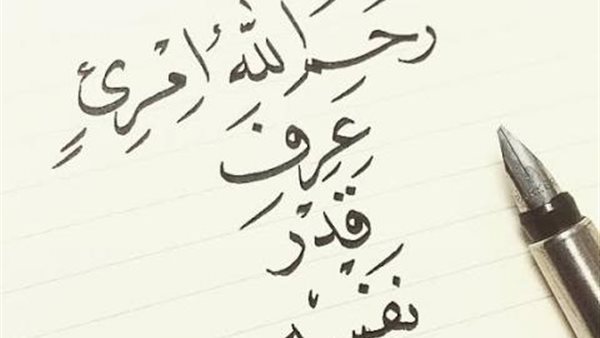 رَحِمَ اللهُ أمْرِئٍ
عَرِفَ
قَدْرَ
نَفْسه